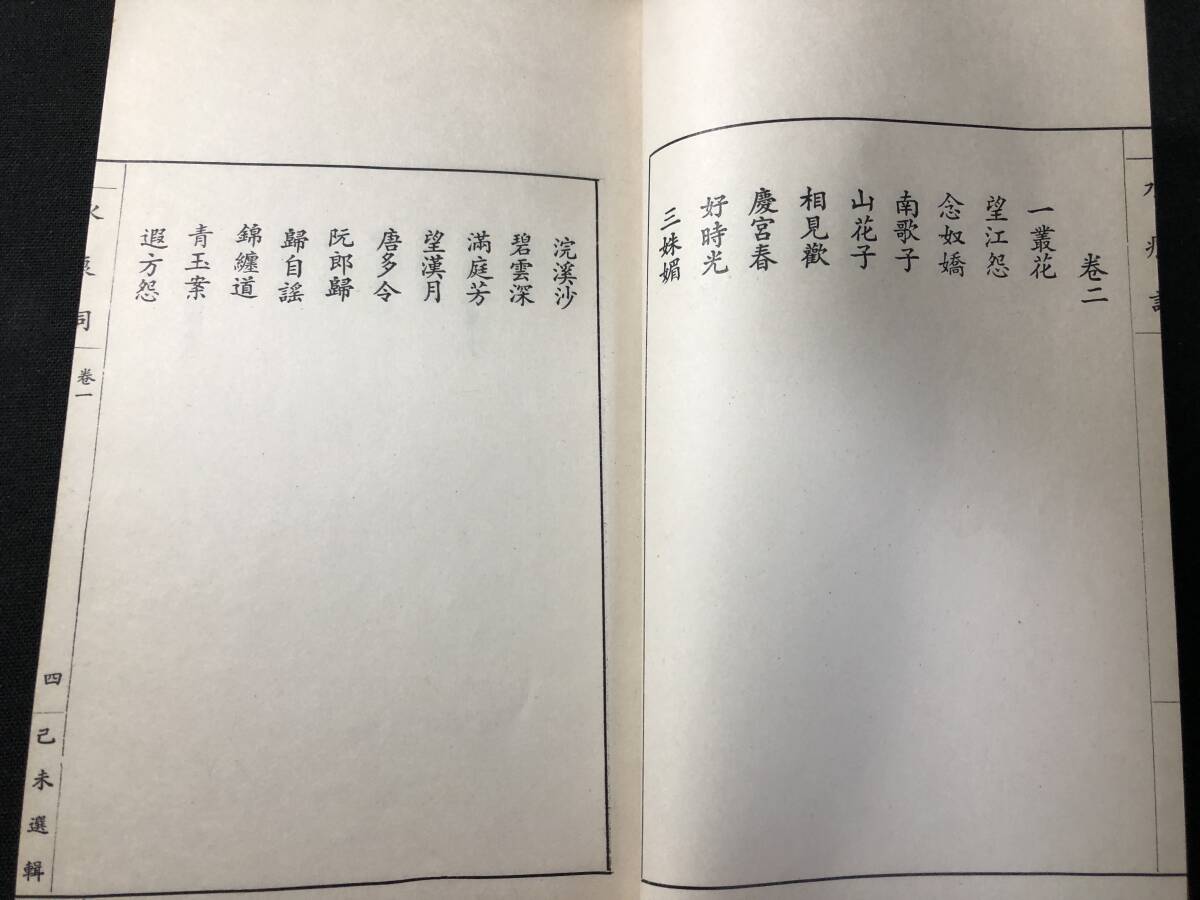 卷二
一叢花
望江怨
念奴嬌
南歌子
山花子
相見歡
慶宮春
好時光
三姝媚
浣溪沙
碧雲深
滿庭芳
望漢月
唐多令
阮郎歸
歸自謠
錦纏道
青玉案
遐方怨
卷一
四
己未選輯